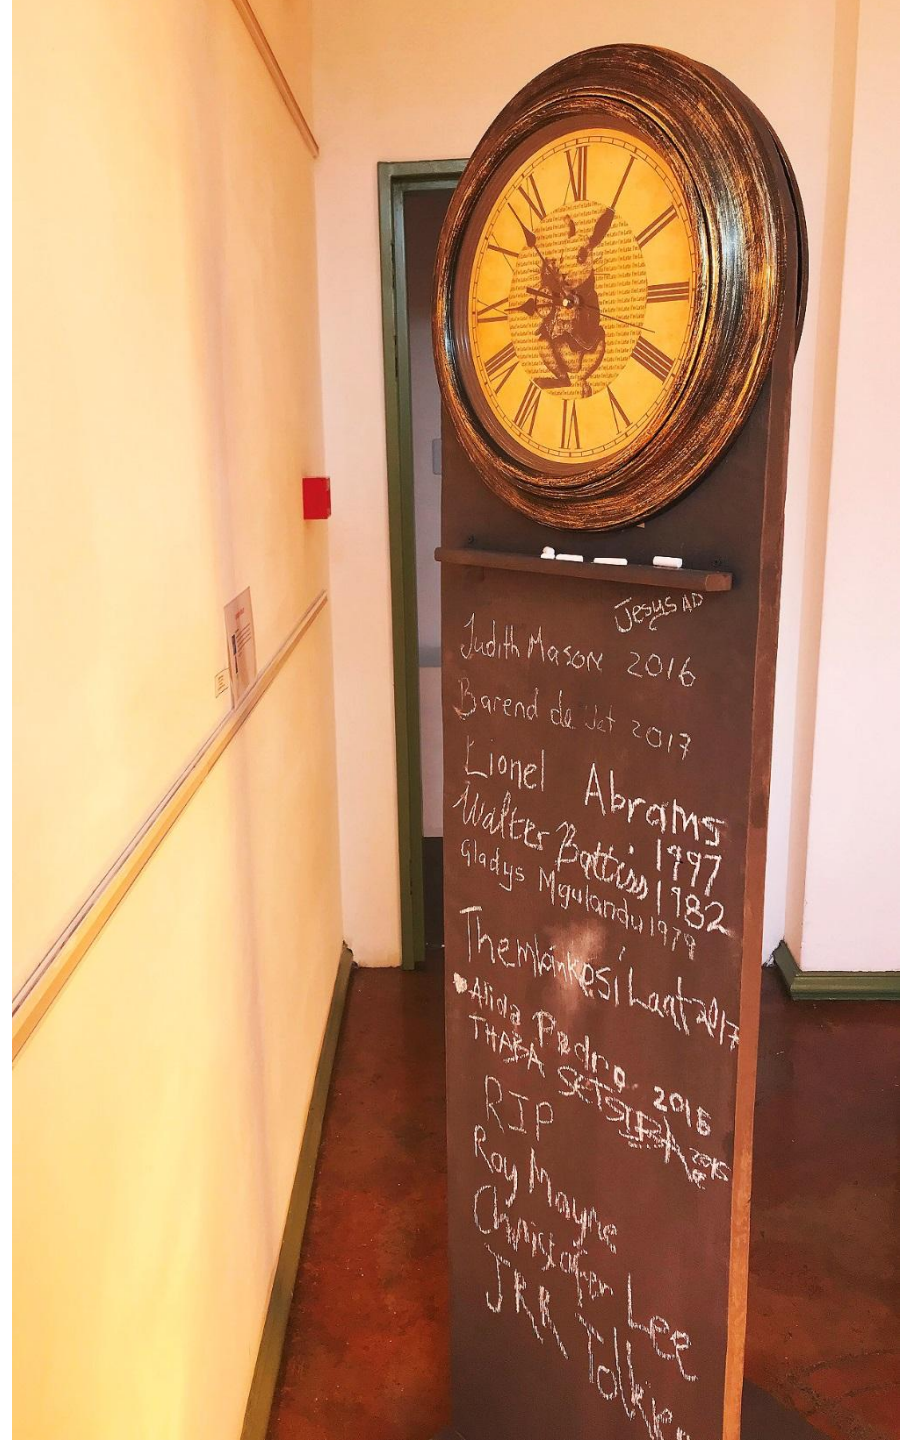 XII
I
II
III
IIII
V
VI
VII
VIII
IX
X
XI
I'm Late I'm Late I'm Late
Jesus AD
Judith Mason 2016
Barend de Wet 2017
Lionel Abrams
1997
Walter Battiss 1982
Gladys Mgulandu 1979
Thembinkosi Laat 2017
Alida Pedro 2016
THABA SETSUBA 2015
RIP
Roy Mayne
Christopher Lee
JRR Tolkien